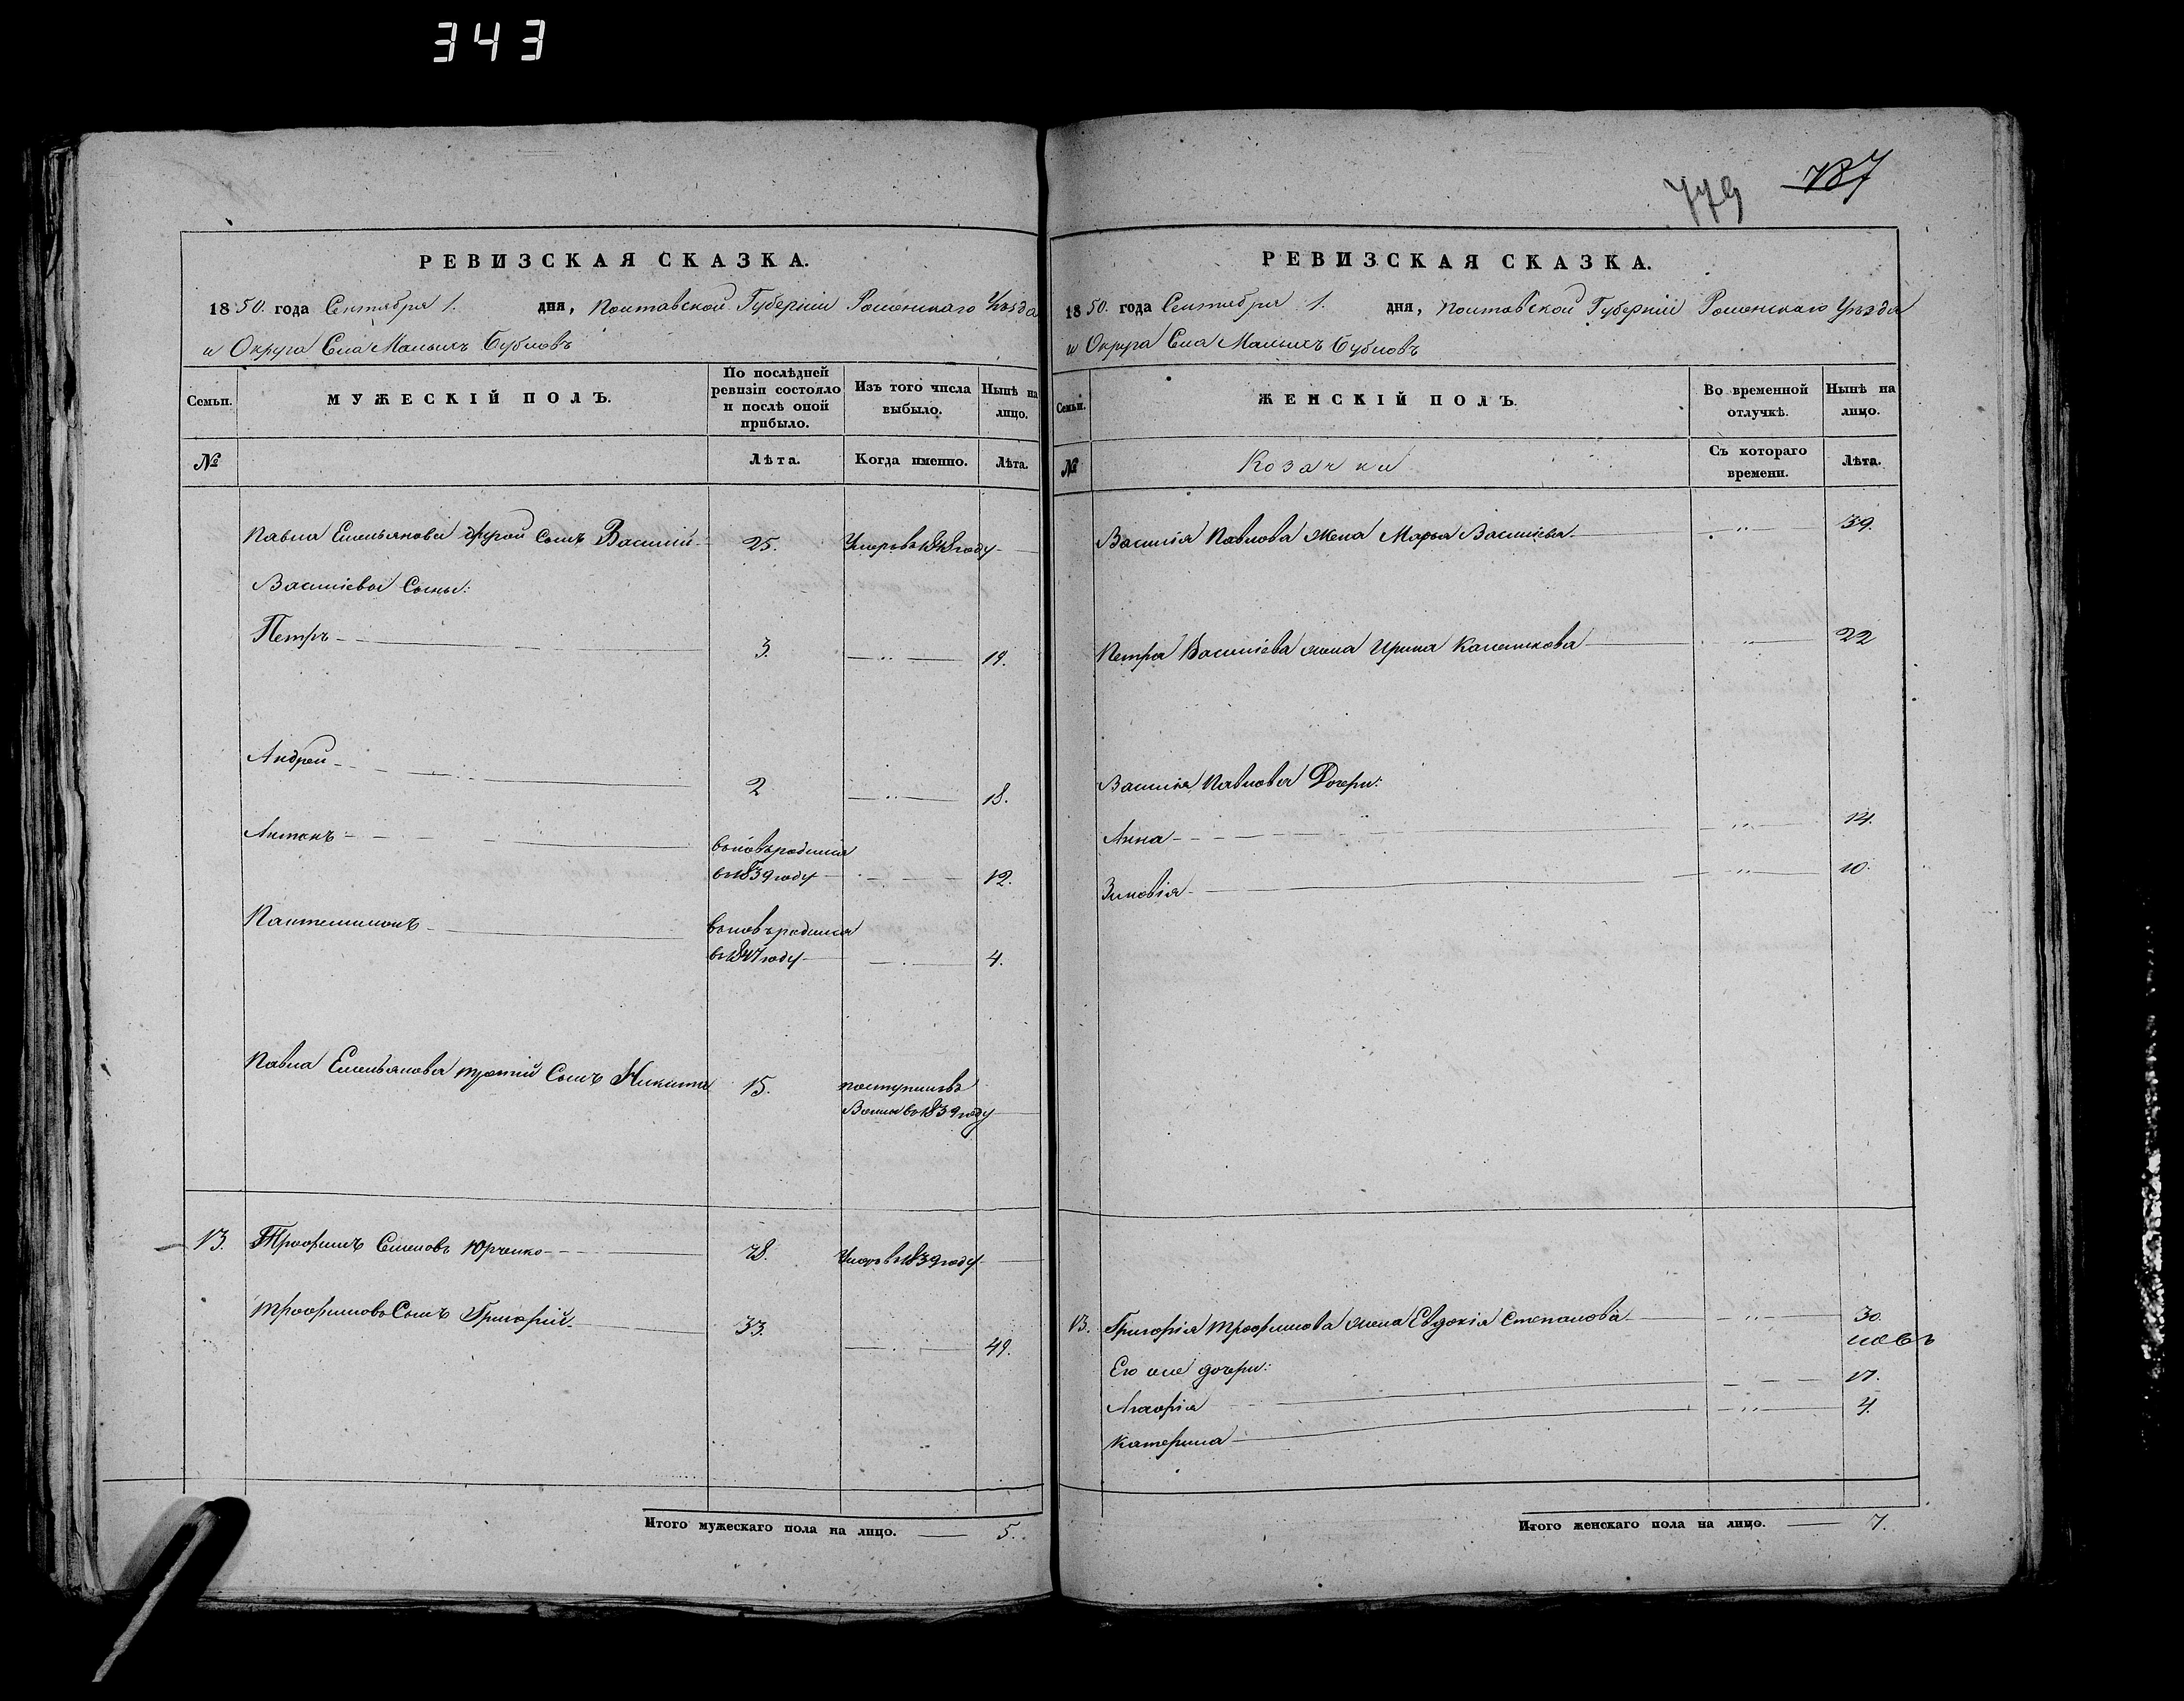 343
779 787
РЕВИЗСКАЯ СКАЗКА.
1850. года Сентября 1. дня, Полтавской Губерніи Роменскаго Уѣзда
и Округа Села Малыхъ Бубновъ
Семьи. МУЖЕСКІЙ ПОЛЪ. По послѣдней ревизіи состояло и послѣ оной прибыло. Изъ того числа выбыло. Нынѣ на лицо.
№ Лѣта. Когда именно. Лѣта.
Павла Емельянова другой сынъ Василій 25. Умеръ въ 1848 году
Василіевы Сыны:
Петръ 3. 19.
Андрей 2 18.
Антонъ вновь родился
въ 1839 году 12.
Пантелимонъ вновь родился
въ 1847 году 4.
Павла Емельянова третій Сынъ Никита 15. поступилъ въ
въ 1839 году
13. Трофимъ Семеновъ Юрченко 78. Умеръ въ 1839 году
Трофимовъ Сынъ Григорій 33. 49.
Итого мужескаго пола на лицо. 5.
РЕВИЗСКАЯ СКАЗКА.
1850. года Сентября 1. дня, Полтавской Губерніи Роменскаго Уѣзда
и Округа Села Малыхъ Бубновъ
Семьи. ЖЕНСКІЙ ПОЛЪ. Во временной отлучкѣ. Нынѣ на лицо.
№ Козачки Съ котораго времени. Лѣта.
Василія Павлова жена Марья Василіева 39.
Петра Василіева жена Ирина Калѣникова 22
Василія Павлова Дочери:
Анна 14.
Зиновія 10.
13. Григорія Трофимова жена Евдокія Степанова 30.
Его дочери:
Агафія 17.
Катерина 4.
Итого женскаго пола на лицо. 7.